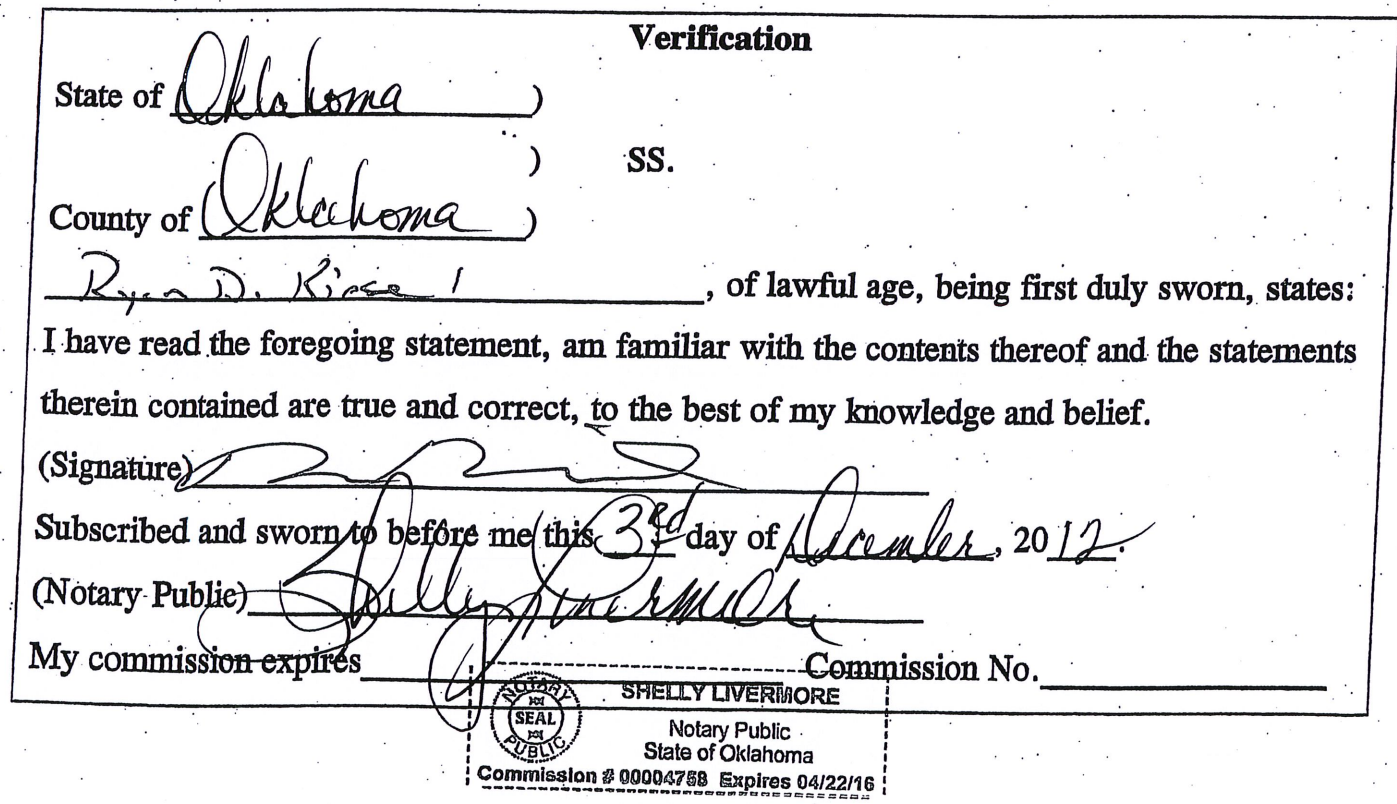 Verification
State of Oklahoma )
) SS.
County of Oklahoma )
Ryan D. Kiesel, of lawful age, being first duly sworn, states:
I have read the foregoing statement, am familiar with the contents thereof and the statements
therein contained are true and correct, to the best of my knowledge and belief.
(Signature)
Subscribed and sworn to before me this 3rd day of December, 2012.
(Notary Public) Shelly Livermore
My commission expires Commission No.
NOTARY SEAL PUBLIC
SHELLY LIVERMORE
Notary Public
State of Oklahoma
Commission # 00004758 Expires 04/22/16